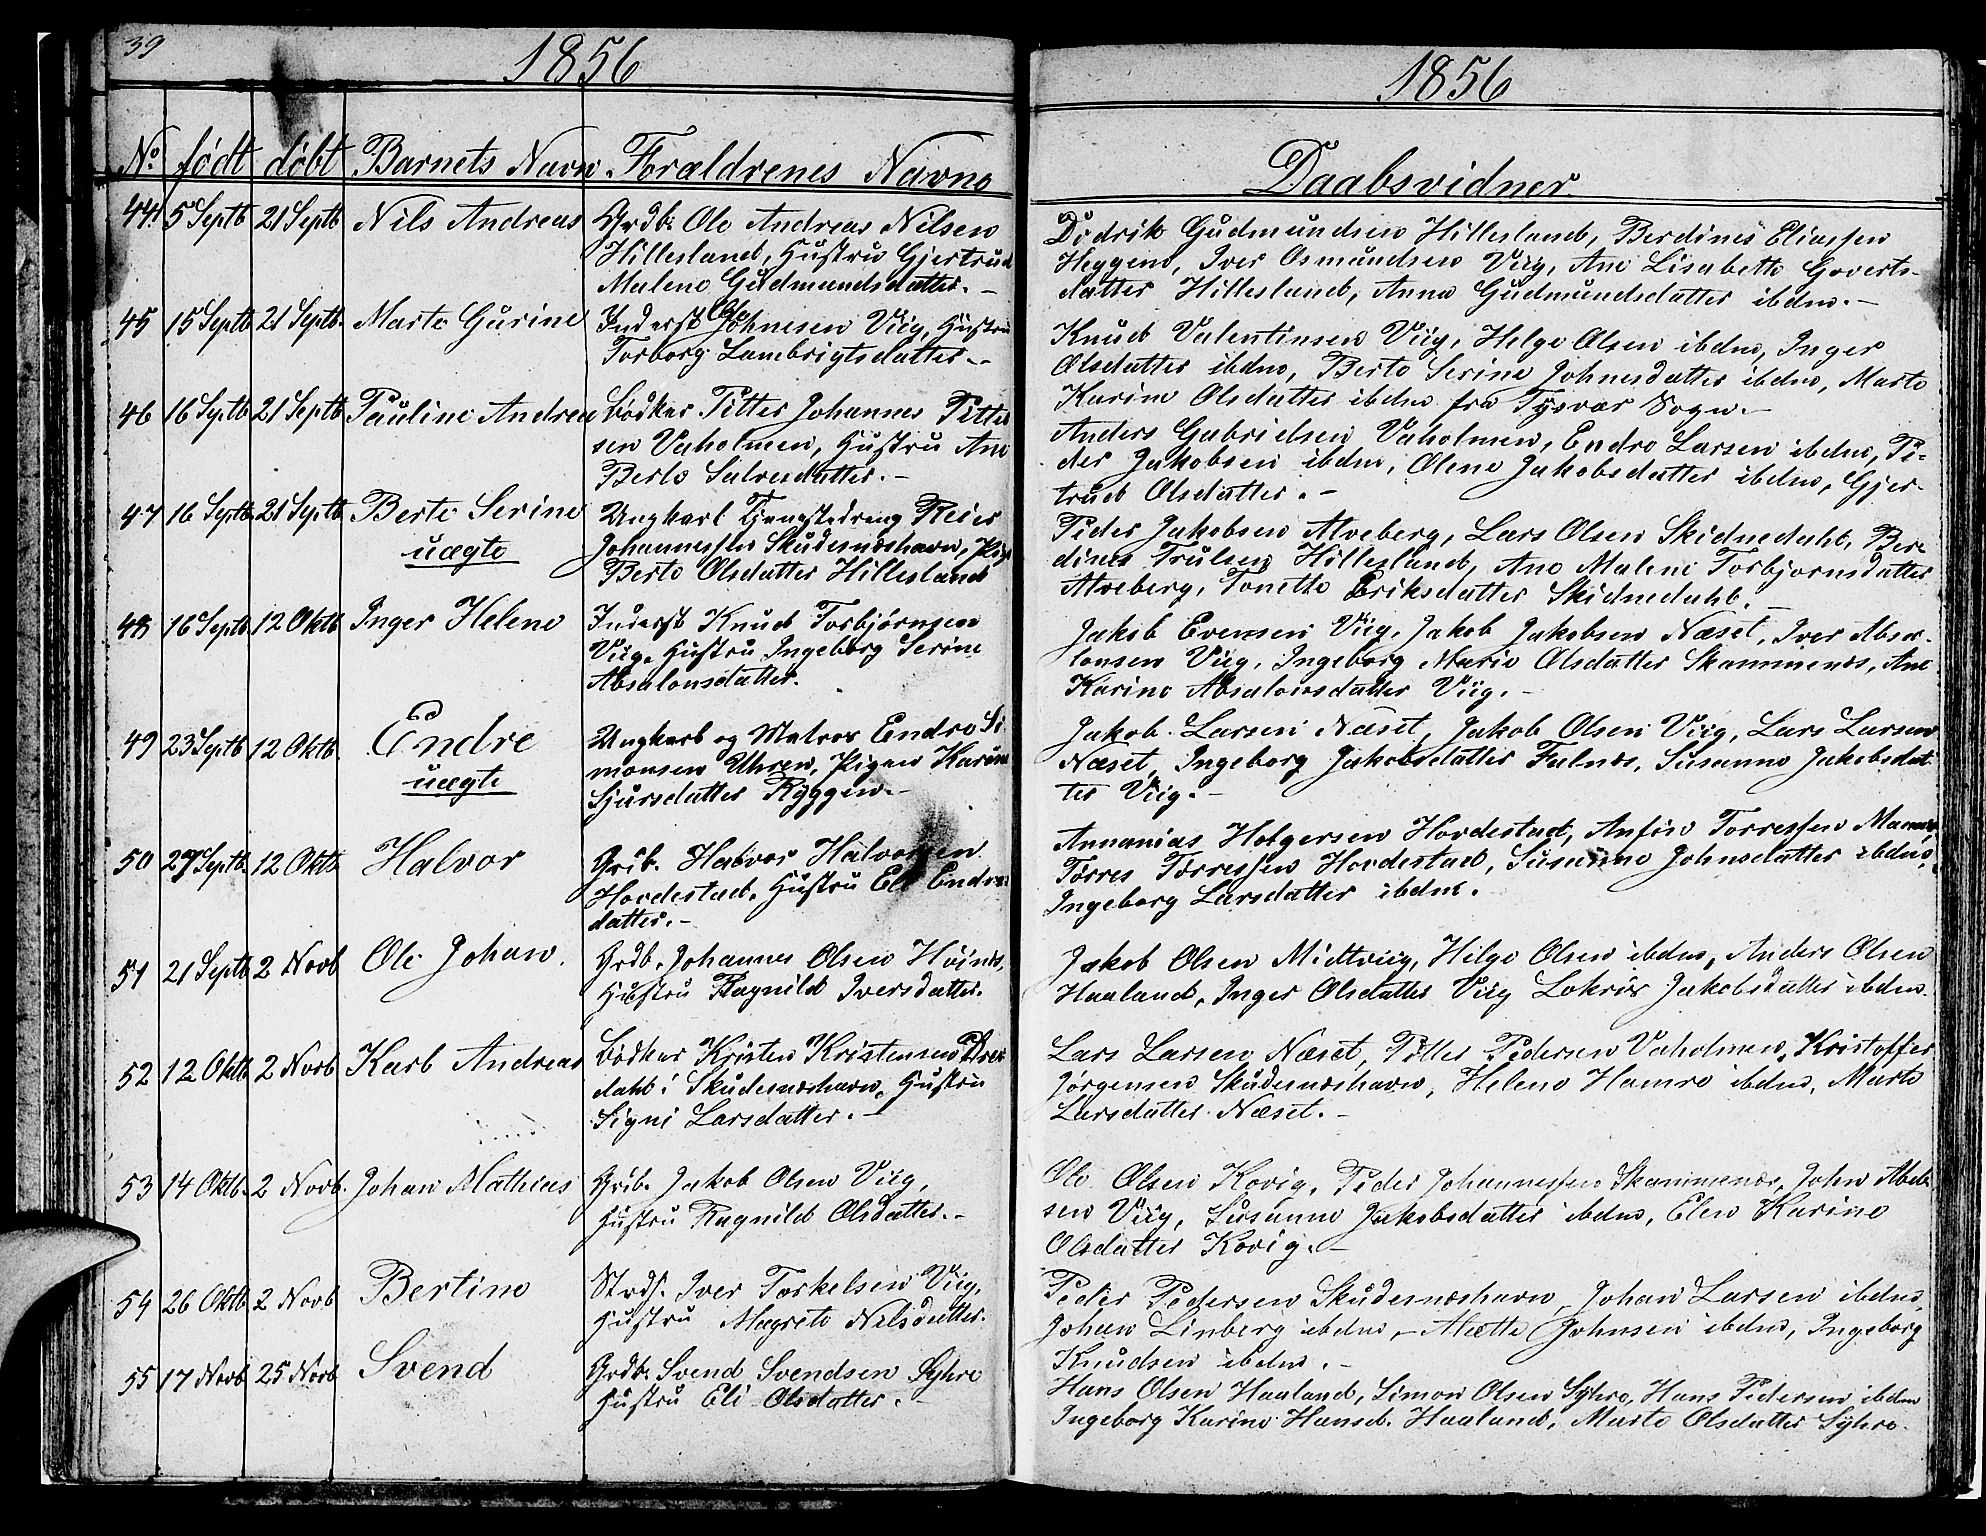 39
1856
No født döbt Barnets Navn. Forældrenes Navne
44. 5 Septb 21 Septb Nils Andreas Grdb. Ole Andreas Nilsen
Hillesland, Hustru Gjertrud
Malene Gudmundsdatter. -
45 15 Septb 21 Septb. Marte Gurine Inderst Ole Johnesen Viig, Hustru
Torborg Lambrigtsdatter. -
46 16 Septb 21 Septb Pauline Andrea Bödker Pitter Johannes Pitter
sen Vaholmen, Hustru Ane
Berte Salvesdatter. -
47 16 Septb 21 Septb Berte Serine Ungkarl Tjenestedreng Reier
uægte Johannessen Skudesnæshavn, Pige
Berte Olsdatter Hillesland
48 16 Septb 12 Oktb Inger Helene Inderst Knud Torbjørnsen
Viig. Hustru Ingeborg Serine
Absalonsdatter.
49 23 Septb 12 Oktb. Endre Ungkarl og Matros Endre Si
uægte monsen Uhren, Pigen Karen
Sjursdatter Ryggen. -
50 27 Septb. 12 Oktb Halvor Grdb. Halvor Halvorsen
Hovdestad. Hustru Eli Endres
datter. -
51 21 Septb 2 Novb Ole Johan. Grdb. Johannes Olsen Høinæs,
Hustru Ragnild Iversdatter.
52 12 Oktb 2 Novb Karl Andreas Bödker Kristen Kristensen Dree
dahl i Skudesnæshavn, Hustru
Signi Larsdatter. -
53 14 Oktb. 2 Novb. Johan Mathias Grdb. Jakob Olsen Viig,
Hustru Ragnild Olsdatter. -
54 26 Oktb 2 Novb Bertine Strds. Iver Torkelsen Viig,
Hustru Magrete Nilsdatter.
55 17 Novb 25 Novb Svend Grdb. Svend Svendsen Syhre
Hustru Eli Olsdatter. -
1856
Daabsvidner.
Didrik Gudmundsen Hillesland, Berdines Eliassen
Heggem, Iver Osmundsen Viig, Ane Lisabette Goverts-
datter Hillesland, Anna Gudmundsdatter ibdm. -
Knud Valentinsen Viig, Helge Olsen ibdm, Inger
Olsdatter ibdm, Berte Serine Johnesdatter ibdm, Marte
Karine Olsdatter ibdm fra Tysvær Sogn. -
Anders Gabrielsen Vaholmen, Endre Larsen ibdm, Pe-
der Jakobsen ibdm, Olene Jakobsdatter ibdm, Gjer-
trud Olsdatter. -
Peder Jakobsen Alveberg, Lars Olsen Skidnedahl, Ber-
dines Trulsen Hillesland, Ane Malene Torbjornsdatter
Alveberg, Tonette Eriksdatter Skidnedahl. -
Jakob Evensen Viig, Jakob Jakobsen Næset, Iver Absa-
lonsen Viig, Ingeborg Marie Olsdatter Skammenæs, Ane
Karine Absalonsdatter Viig. -
Jakob Larsen Næset, Jakob Olsen Viig, Lars Larsen
Næset, Ingeborg Jakobsdatter Falnæs, Susanne Jakobsdat-
ter Viig. -
Annanias Holgersen Hovdestad, Anfin Torressen
Torres Torressen Hovdestad, Susanne Johnsdatter ibdm,
Ingeborg Larsdatter ibdm.
Jakob Olsen Midtviig, Helge Olsen ibdm, Anders Olsen
Haaland, Inger Olsdatter Viig Jakobsdatter ibdm.
Lars Larsen Næset, Pitter Pedersen Vaholmen, Kristoffer
Jørgensen Skudesnæshavn, Helene Hamre ibdm, Marte
Larsdatter Næset. -
Ole Olsen Kovig, Peder Johannessen Skammenæs, John Abel-
sen Viig, Susanne Jakobsdatter ibdm, Elen Karine
Olsdatter Kovig. -
Peder Pedersen Skudesnæshavn, Johan Larsen ibdm,
Johan Linberg ibdm, - Mætte Johnsen ibdm, Ingeborg
Knudsen ibdm. -
Hans Olsen Haaland, Simon Olsen Syhre, Hans Pedersen ibdm
Ingeborg Karine Hansd. Haaland, Marte Olsdatter Syhre.